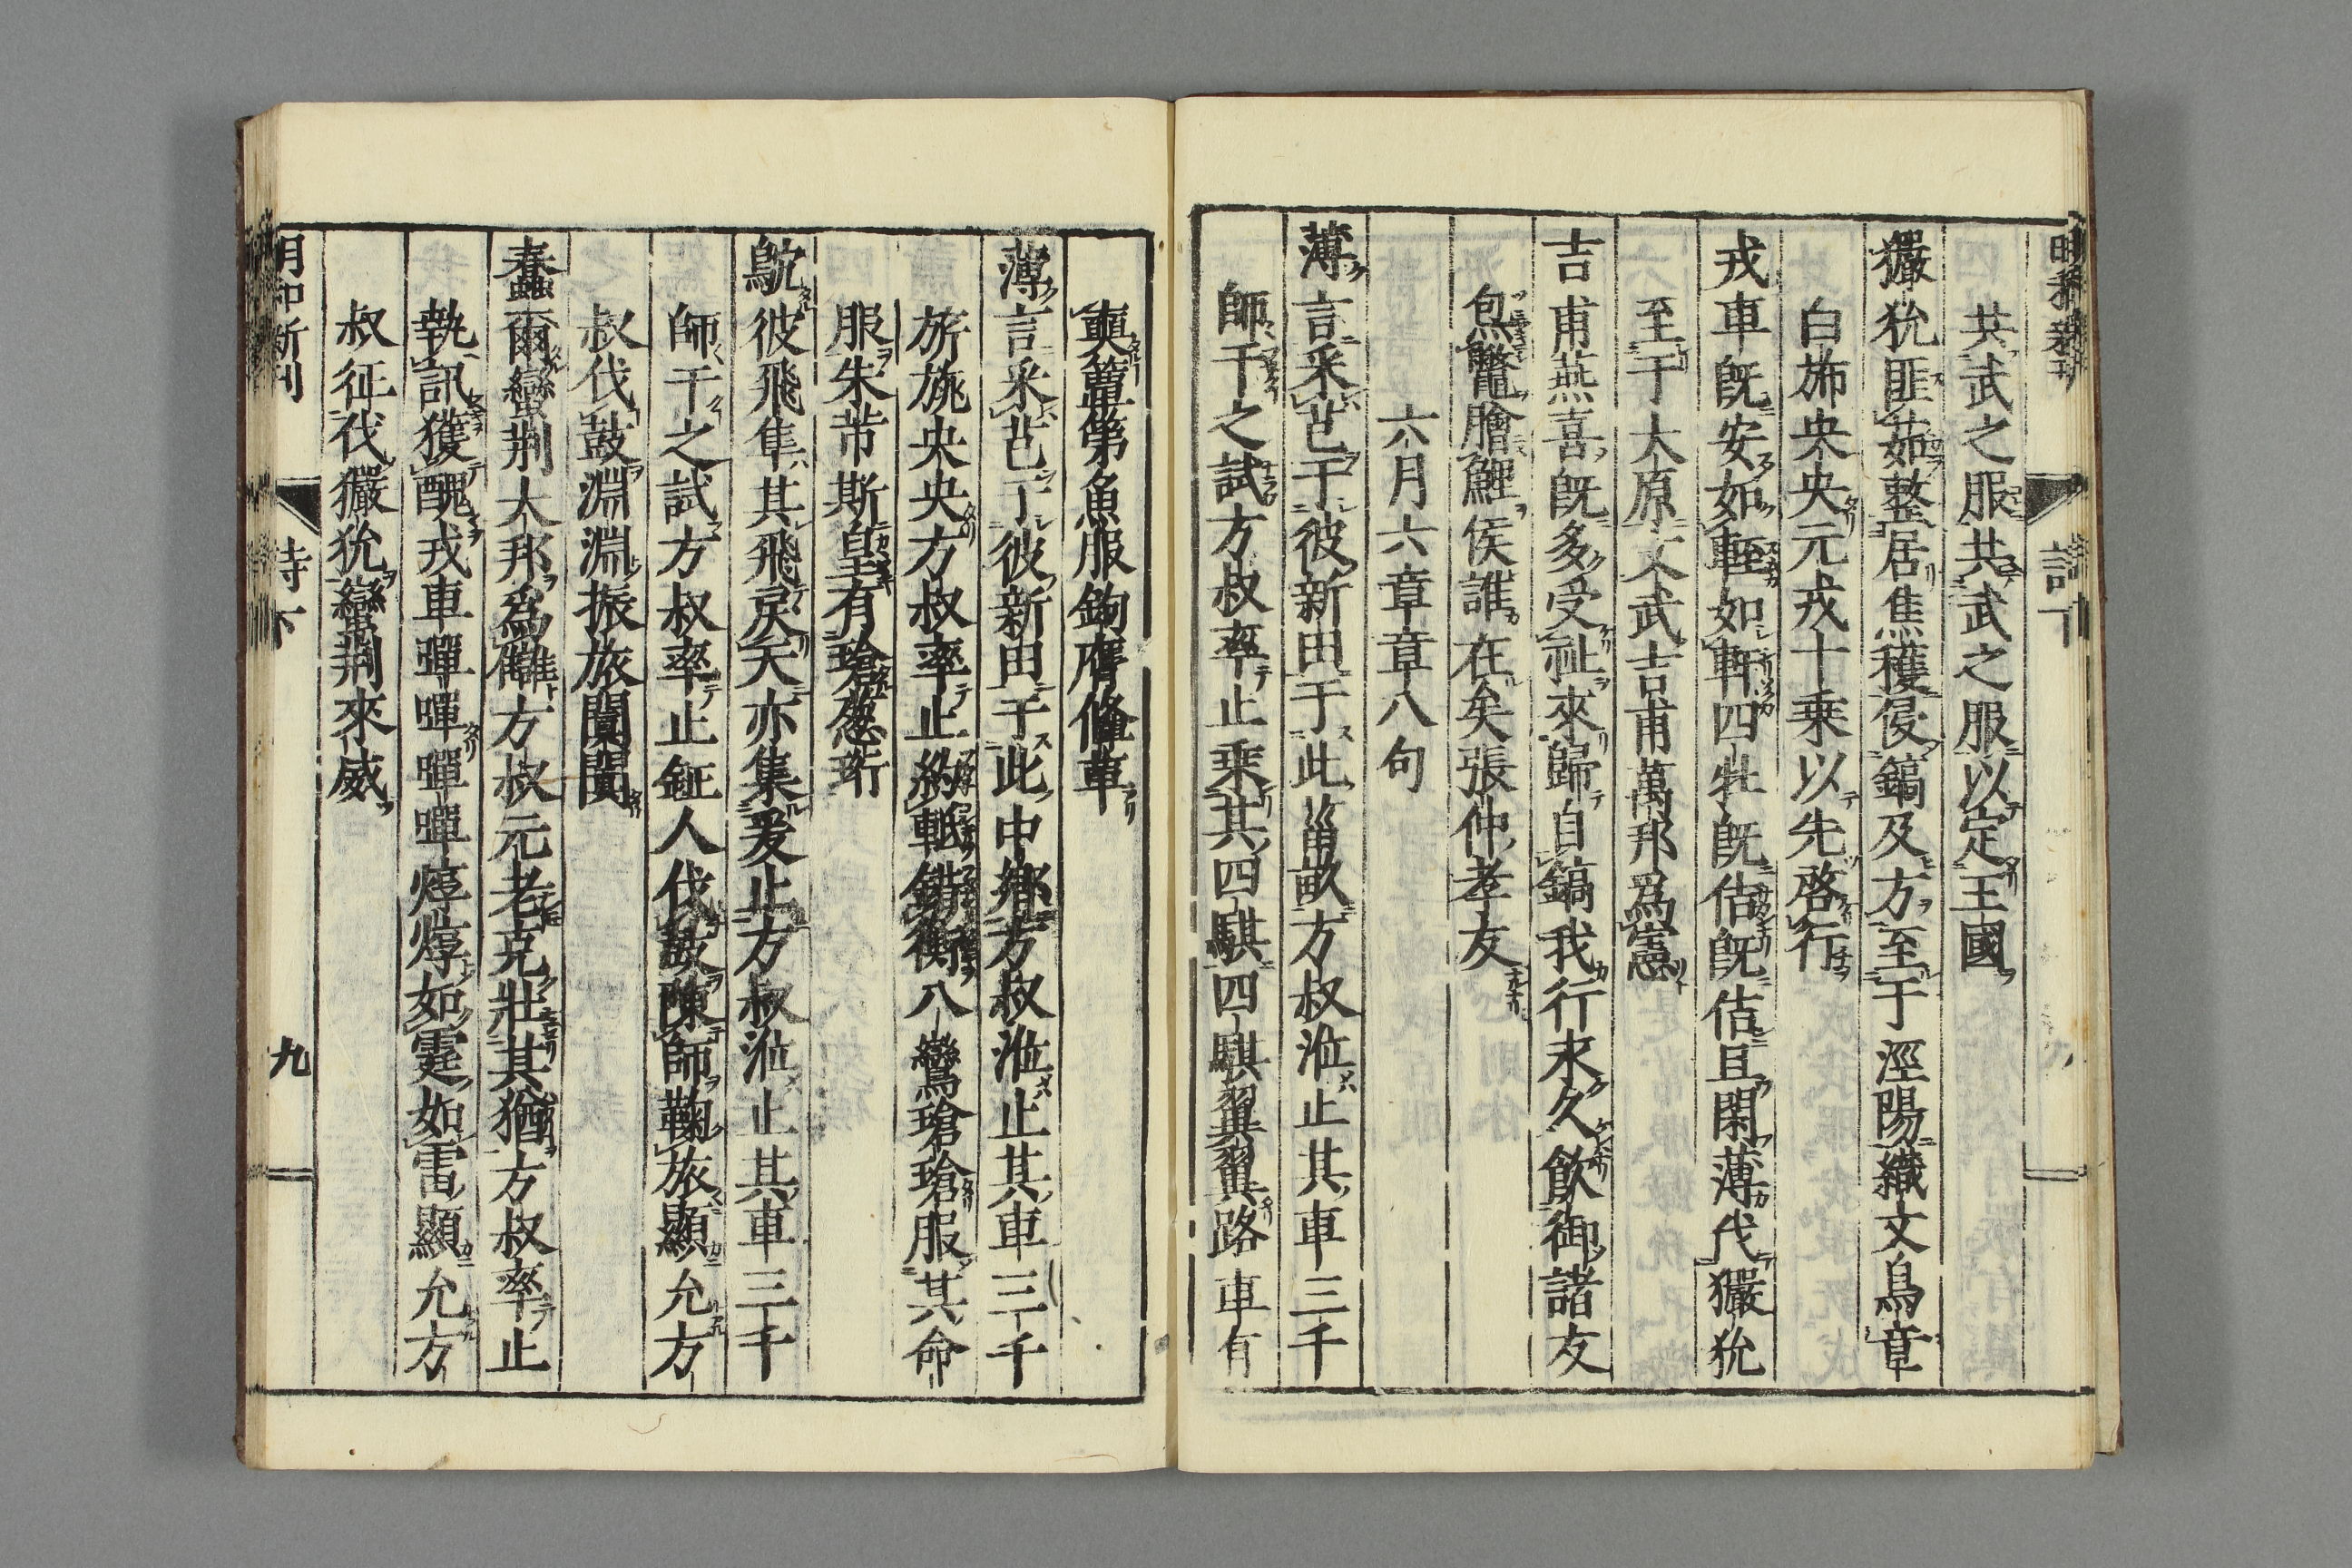 共武之服共武之服以定王國
玁狁匪茹整居焦穫侵鎬及方至于涇陽織文鳥章
白斾央央元戎十乗以先啓行
戎車旣安如輊如軒四牡旣佶旣佶且閑薄伐玁狁
至于大原文武吉甫萬邦爲憲
吉甫燕喜旣多受祉來歸自鎬我行永久飲御諸友
炰鼈膾鯉侯誰在矣張仲孝友
六月六章章八句
薄言采芑于彼新田于此菑畝方叔涖止其車三千
師干之試方叔率止乗其四騏四騏翼翼路車有
奭簟笰魚服鉤膺鞗革
薄言采芑于彼新田于此中鄉方叔涖止其車三千
旂旐央央方叔率止約軝錯衡八鸞瑲瑲服其命
服朱芾斯皇有瑲葱珩
鴥彼飛隼其飛戾天亦集爰止方叔涖止其車三千
師干之試方叔率止鉦人伐鼓陳師鞠旅顯允方
叔伐鼓淵淵振旅闐闐
蠢爾蠻荆大邦爲讎方叔元老克壯其猶方叔率止
執訊獲醜戎車嘽嘽嘽嘽焞焞如霆如雷顯允方
叔征伐玁狁蠻荆來威
明和新刊
詩下
九